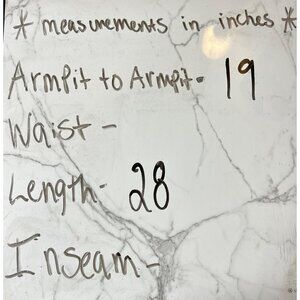 * measurements in inches *
Armpit to Armpit- 19
Waist -
Length- 28
Inseam -